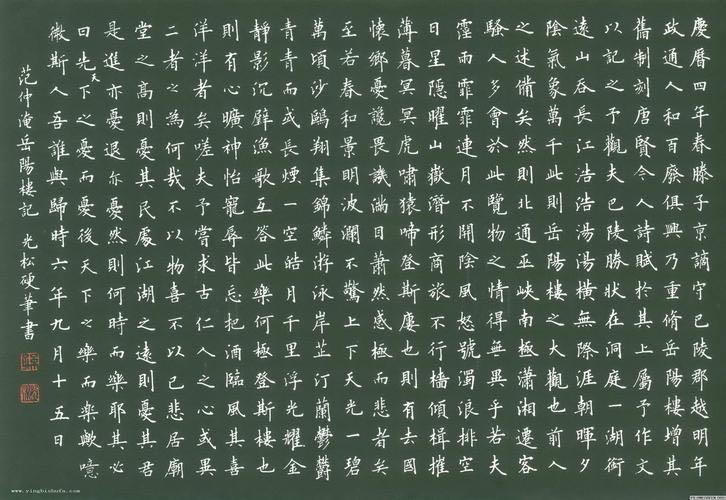 慶曆四年春滕子京謫守巴陵郡越明年
政通人和百廢俱興乃重脩岳陽樓增其
舊制刻唐賢今人詩賦於其上屬予作文
以記之予觀夫巴陵勝狀在洞庭一湖銜
遠山吞長江浩浩湯湯橫無際涯朝暉夕
陰氣象萬千此則岳陽樓之大觀也前人
之述備矣然則北通巫峽南極瀟湘遷客
騷人多會於此覽物之情得無異乎若夫
霪雨霏霏連月不開陰風怒號濁浪排空
日星隱曜山嶽潛形商旅不行檣傾楫摧
薄暮冥冥虎嘯猿啼登斯樓也則有去國
懷鄉憂讒畏譏滿目蕭然感極而悲者矣
至若春和景明波瀾不驚上下天光一碧
萬頃沙鷗翔集錦鱗游泳岸芷汀蘭鬱鬱
青青而或長煙一空皓月千里浮光耀金
靜影沉璧漁歌互答此樂何極登斯樓也
則有心曠神怡寵辱皆忘把酒臨風其喜
洋洋者矣嗟夫予嘗求古仁人之心或異
二者之為何哉不以物喜不以己悲居廟
堂之高則憂其民處江湖之遠則憂其君
是進亦憂退亦憂然則何時而樂耶其必
曰先天下之憂而憂後天下之樂而樂歟噫
微斯人吾誰與歸時六年九月十五日
范仲淹岳陽樓記 光松硬筆書
www.yingbishufa.com